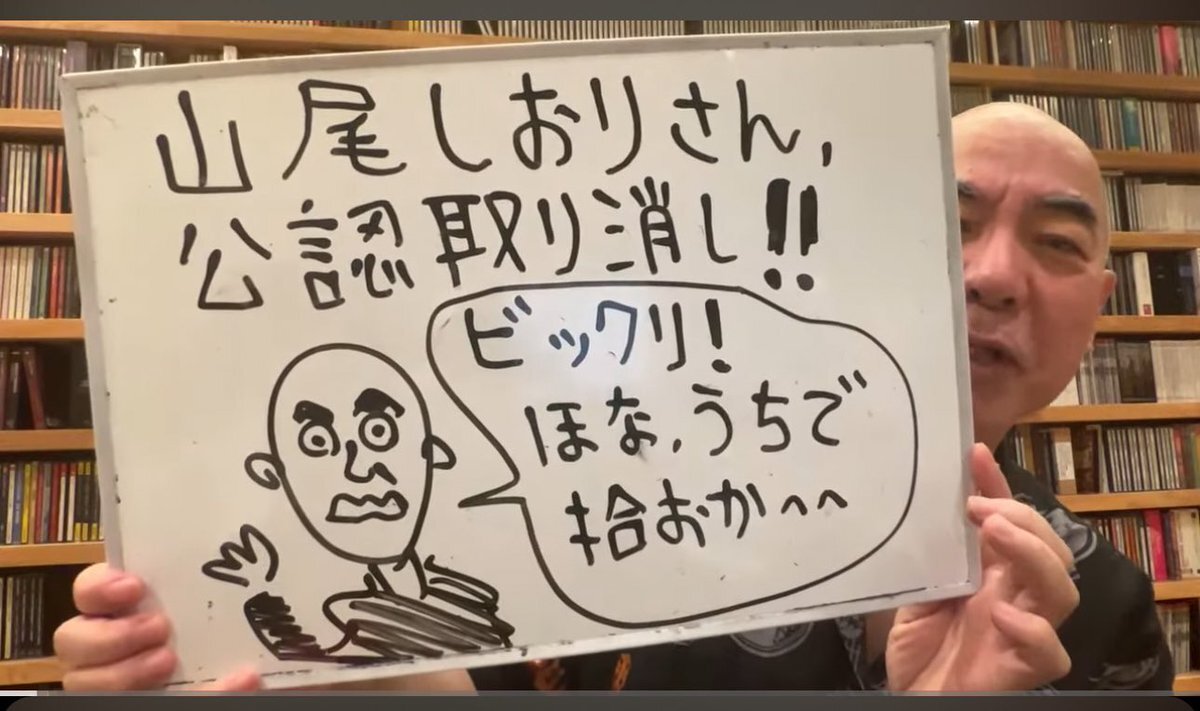 山尾しおりさん,
公認取り消し!!
ビックリ!
ほな,うちで
拾おかへへ